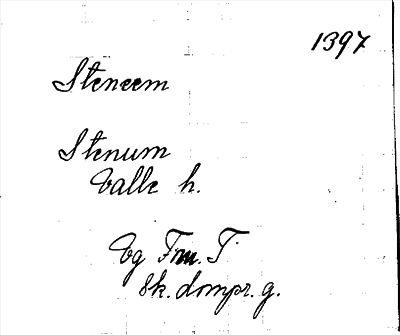 1397
Steneem
Stenum
Valle h.
Vg Fnu. T
Sk. dompr. g.